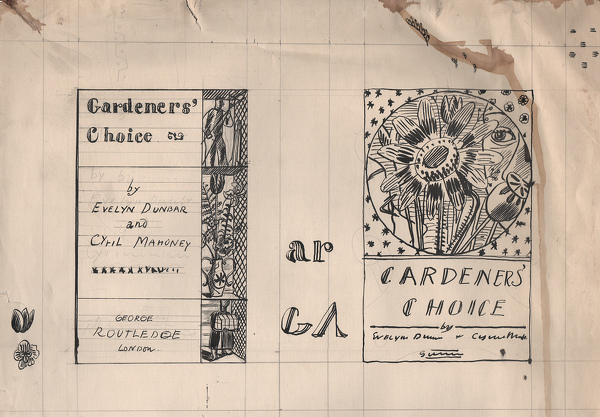 Gardeners'
Choice
by
EVELYN DUNBAR
and
CYRIL MAHONEY
GEORGE
ROUTLEDGE
LONDON.
ar
GA
GARDENERS'
CHOICE
by
EVELYN